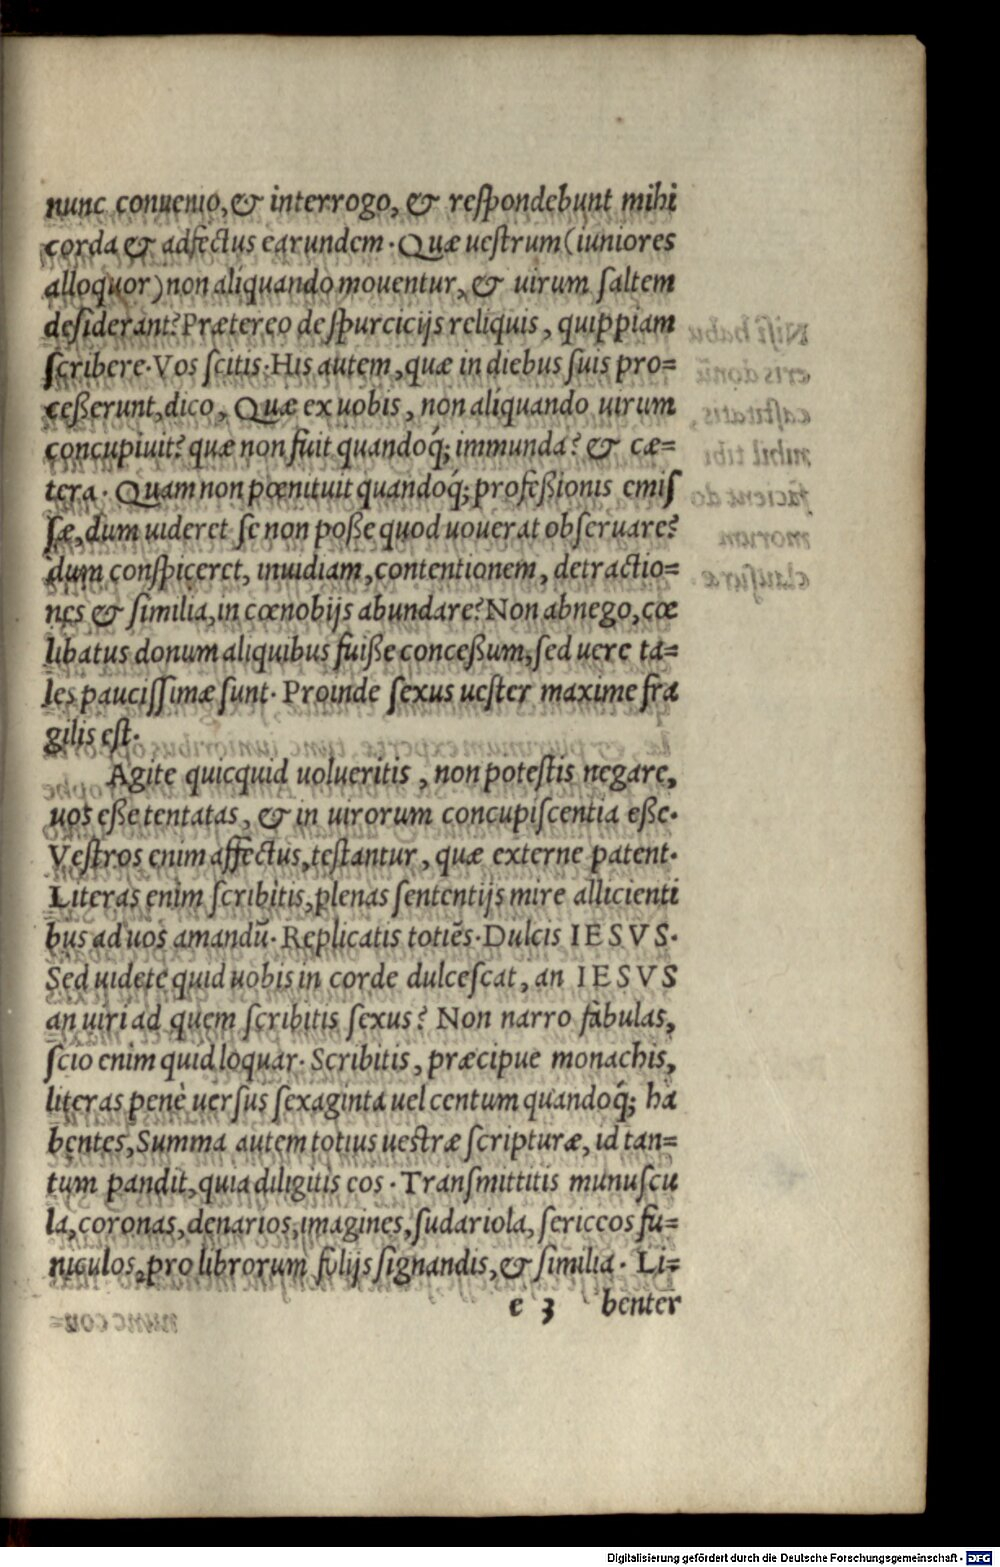 nunc conuenio, & interrogo, & reſpondebunt mihi
corda & adfectus earundem. Quæ ueſtrum (iuniores
alloquor) non aliquando mouentur, & uirum ſaltem
deſiderant? Prætereo de ſpurcicijs reliquis, quippiam
ſcribere. Vos ſcitis. His autem, quæ in diebus ſuis pro=
ceßerunt, dico, Quæ ex uobis, non aliquando uirum
concupiuit? quæ non fuit quandoq́; immunda? & cæ=
tera. Quam non pœnituit quandoq́; profeßionis emiſ
ſæ, dum uideret ſe non poße quod uouerat obſeruare?
dum conſpiceret, inuidiam, contentionem, detractio=
nes & ſimilia, in cœnobijs abundare? Non abnego, cœ
libatus donum aliquibus fuiße conceßum, ſed uere ta=
les pauciſſimæ ſunt. Proinde ſexus ueſter maxime fra
gilis eſt.
Agite quicquid uolueritis, non poteſtis negare,
uos eße tentatas, & in uirorum concupiſcentia eße.
Veſtros enim affectus, teſtantur, quæ externe patent.
Literas enim ſcribitis, plenas ſententijs mire allicienti
bus ad uos amandū. Replicatis totiēs. Dulcis IESVS.
Sed uidete quid uobis in corde dulceſcat, an IESVS
an uiri ad quem ſcribitis ſexus? Non narro fabulas,
ſcio enim quid loquar. Scribitis, præcipue monachis,
literas penè uerſus ſexaginta uel centum quandoq́; ha
bentes, Summa autem totius ueſtræ ſcripturæ, id tan=
tum pandit, quia diligitis eos. Tranſmittitis munuſcu
la, coronas, denarios, imagines, ſudariola, ſericeos fu=
niculos, pro librorum folijs ſignandis, & ſimilia. Li=
e 3 benter
Digitalisierung gefördert durch die Deutsche Forschungsgemeinschaft - DFG